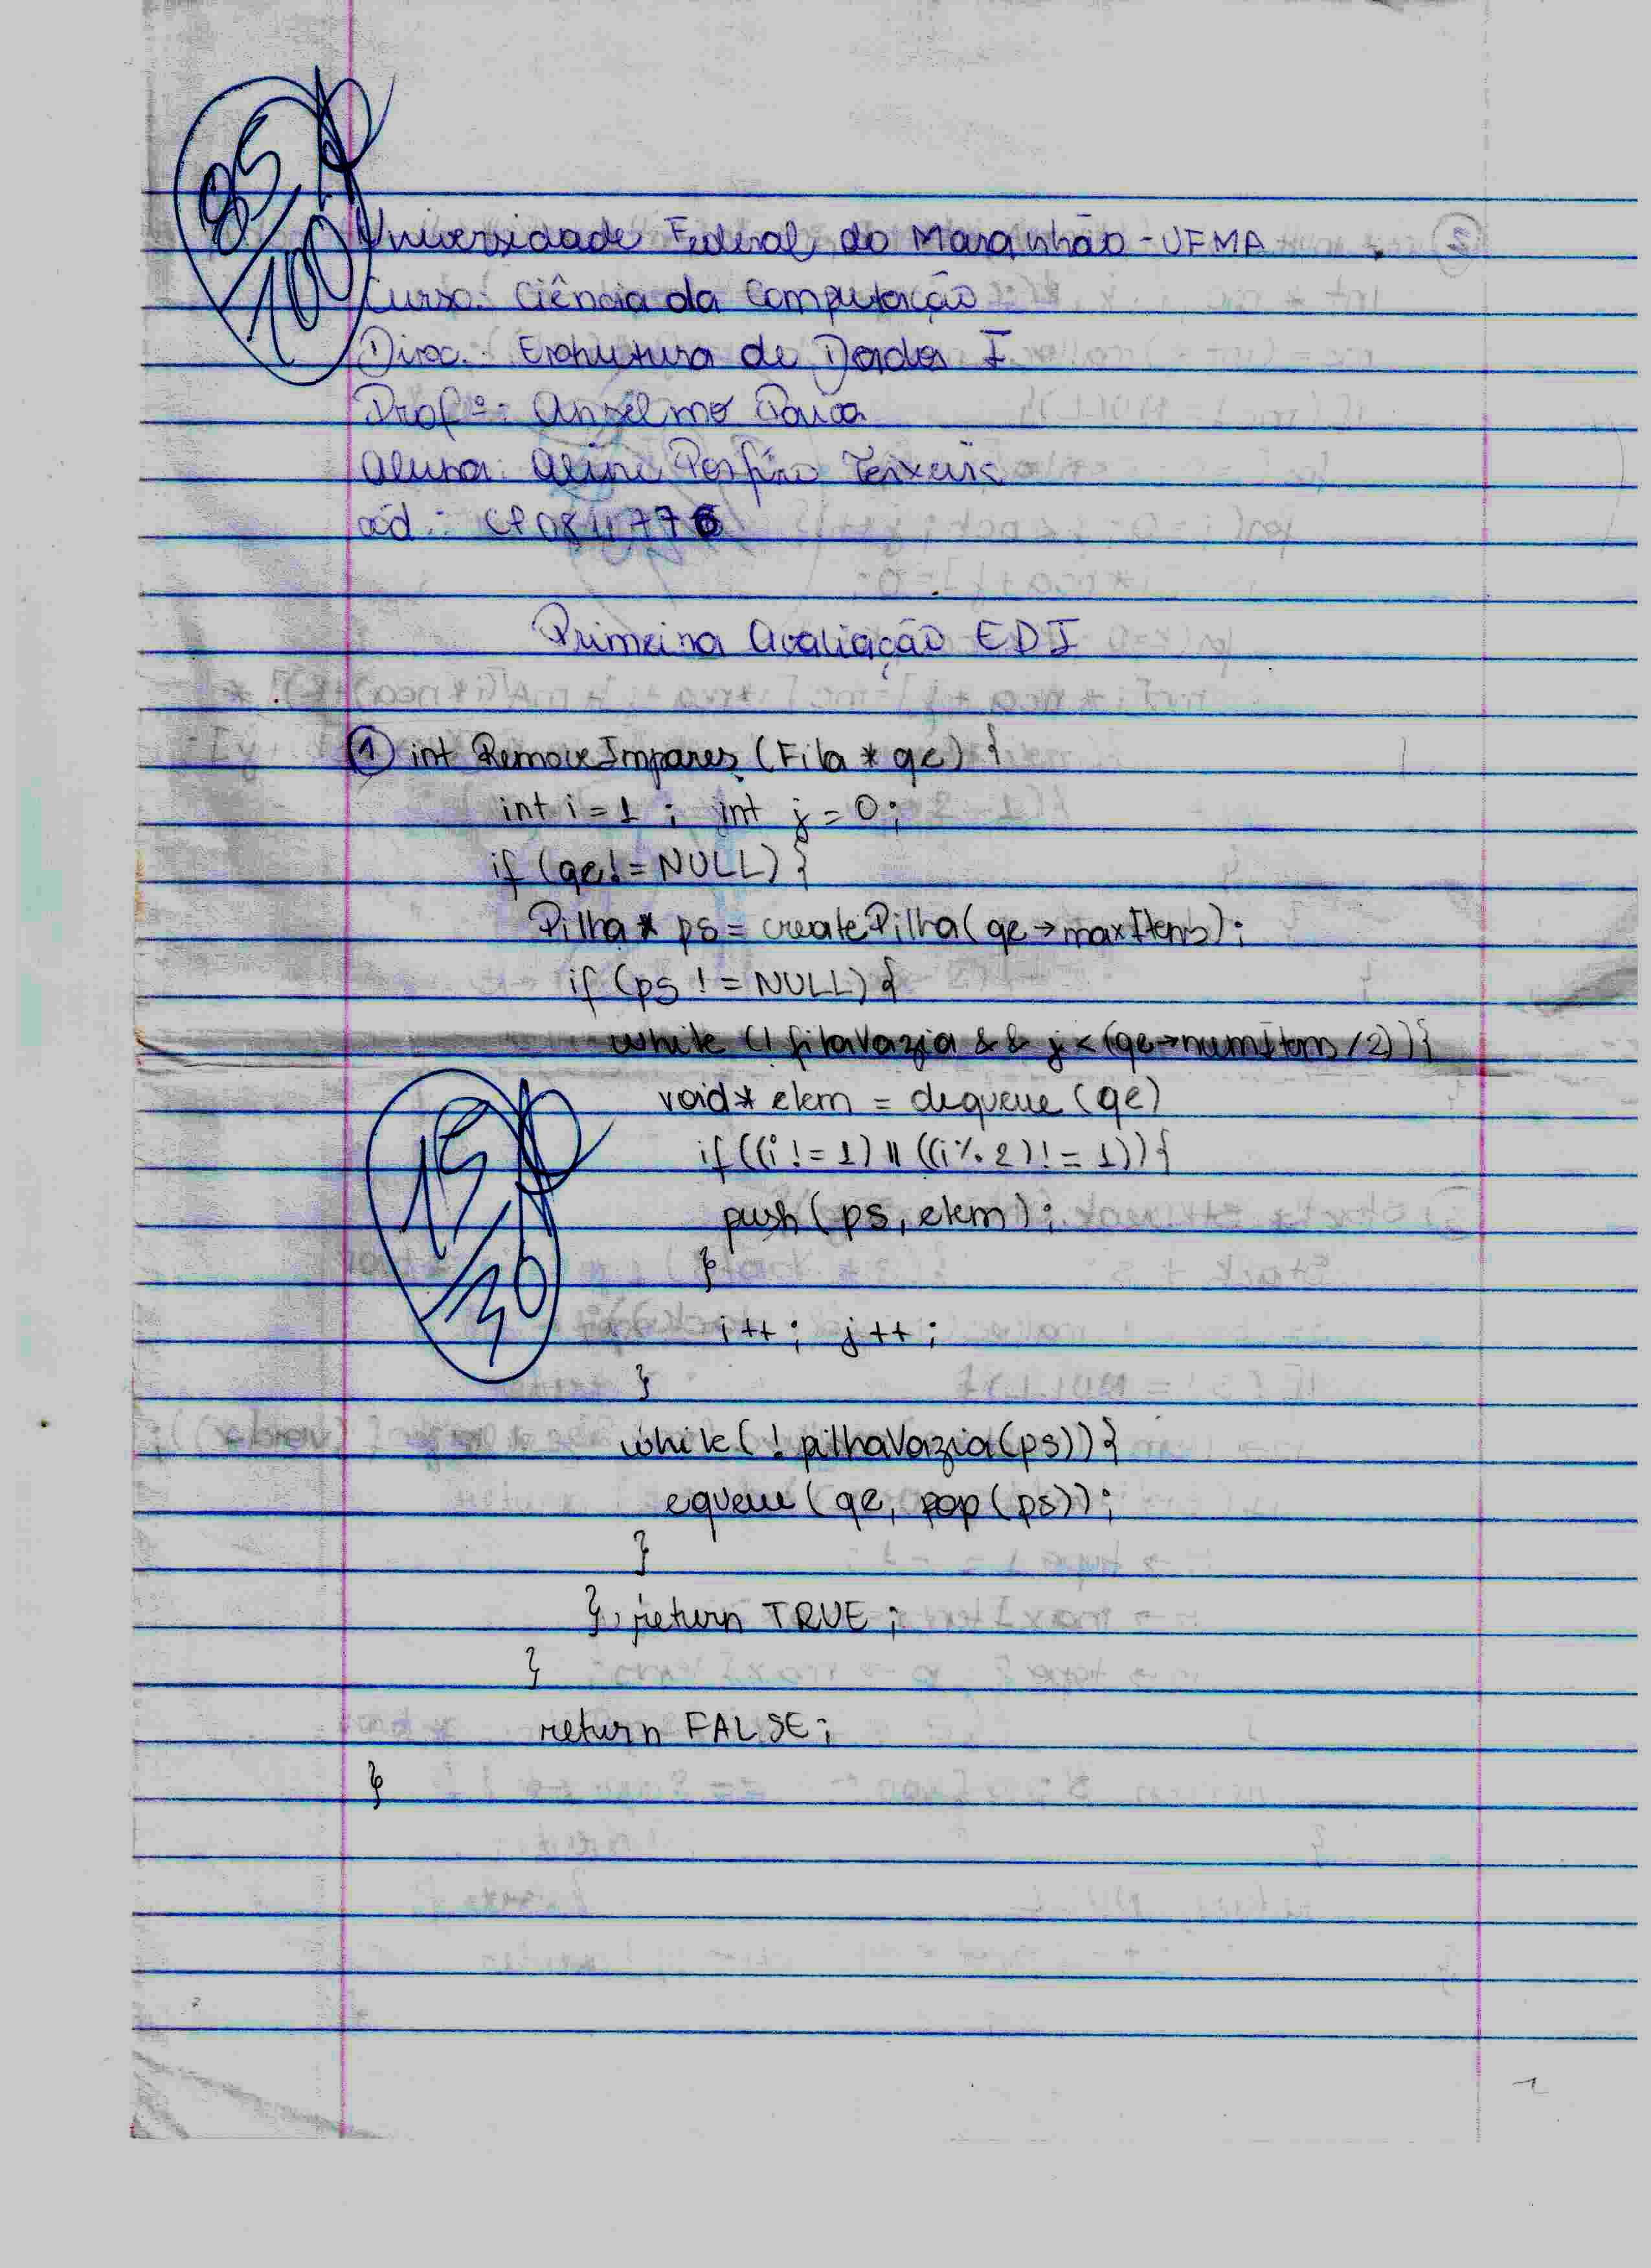 85
100
Universidade Federal do Maranhão - UFMA
Curso: Ciência da Computação
Disc.: Estrutura de Dados I
Profº: Anselmo Paiva
Aluna: Aline Porfiro Teixeira
Primeira Avaliação EDI
1 int RemoveImpares (Fila * qe) {
int i = 1 ; int j = 0 ;
if (qe != NULL) {
Pilha * ps = createPilha (qe → maxItens) ;
if (ps != NULL) {
while (! filaVazia && j < (qe → numItens / 2)) {
void * elem = dequeue (qe)
if ((i != 1) || ((i % 2) != 1)) {
push (ps, elem) ;
}
i ++ ; j ++ ;
}
15
30
while ( ! pilhaVazia (ps)) {
equeue (qe, pop (ps)) ;
}
} return TRUE ;
}
return FALSE ;
}
1